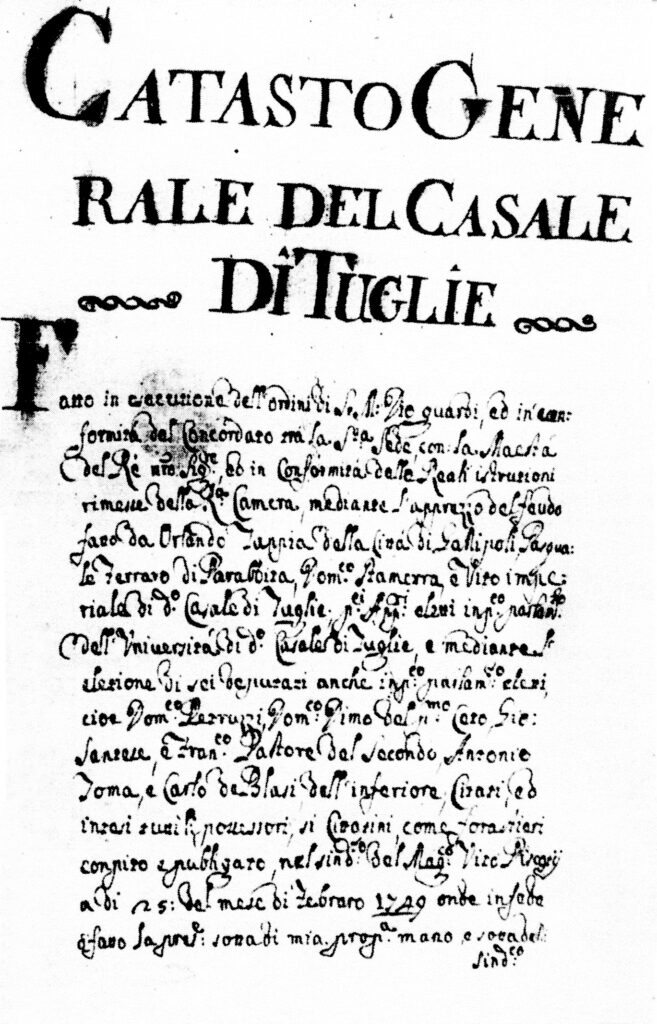 CATASTO GENE
RALE DEL CASALE
DI TUGLIE
Fatto in esecutione dell'ordini di S. M: Dio guardi, ed in con:
formità del Concordato trà la S.ta Sede, con la Maestà
del Rè nro Sig.re, ed in conformità delle Reali istrutioni
rimesse della R.a Camera, mediante l'apprezzo del feudo
fatto da Orlando Tuppia della Città di Gallipoli, Pasqua:
le Ferraro di Parabbita, Dom.co Stamerra, è Vito impe:
riale di d.o Casale di Tuglie, eletti in p.co
dell'Università di d.o Casale di Tuglie, e mediante l'
eletione di sei deputati anche in p.co parlam.to eletti,
cioè Dom.co Petruzzi, Dom.co Pimo del p.mo Ceto, Gio:
Santese, è Fran.co Pastore del secondo, Antonio
Toma, e Carlo de Blasi dell'inferiore, Citati, ed
intesi tutti li possessori, sì Citatini, come forastieri
compito e publigato, nel sind.to del Mag.co Vito
a di 25: del mese di Febraro 1749 onde in fede
hò fatto la pres.te sotta di mia prop.a mano e sotta del
sind.co